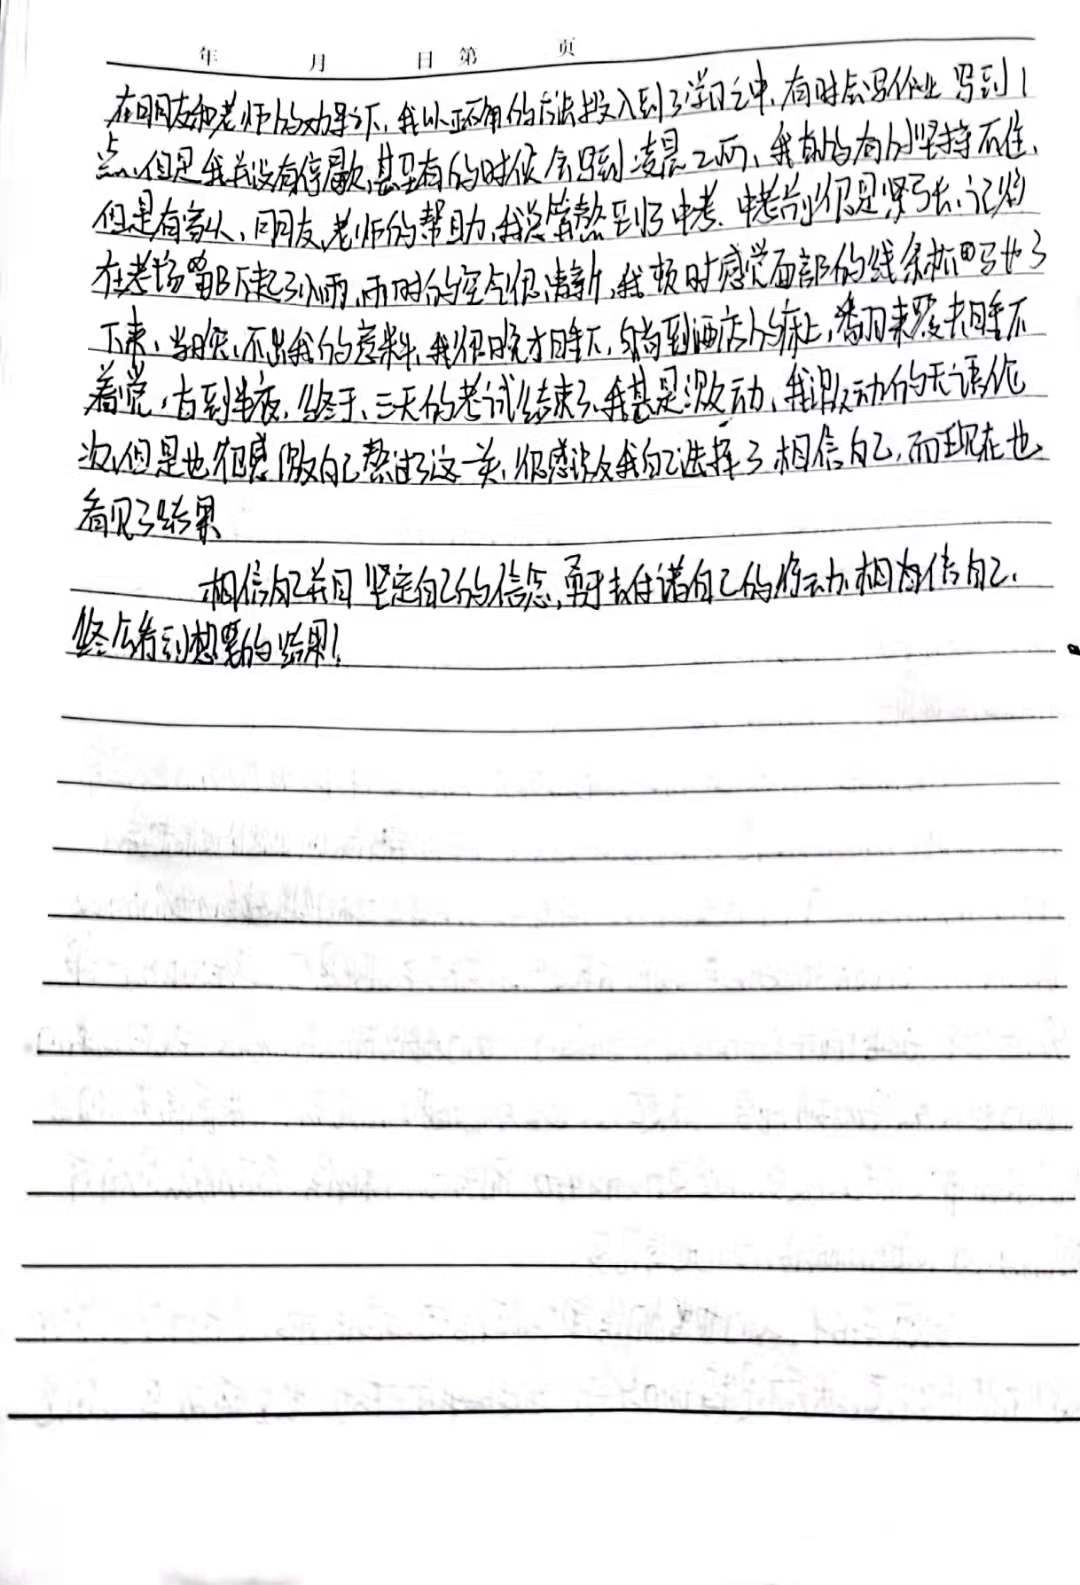 年 月 日 第 页
在同朋友和老师的劝导下，我以正确的方法投入到了学习之中，有时会写作业 写到1
点，但是我并没有停歇，甚至有的时候会写到凌晨2而，我有的有的坚持不住，
但是有家人、同朋友、老师的帮助，我总算熬到了中考。中考前很是紧张，记得
在考场 下起了小雨，雨时的空气很清新，我顿时感觉面部的线条 了
下来，当晚，不出我的意料，我很晚才睡下，躺到酒店的床上，翻来覆去睡不
着觉，直到半夜。终于，三天的考试结束了，我甚是激动，我激动的无语伦
次，但是也很感激自己熬过了这一关，很感激我自己选择了相信自己，而现在也
看见了结果
相信自己并且坚定自己的信念，勇于 自己的 相 信自己，
终会看到想要的结果！